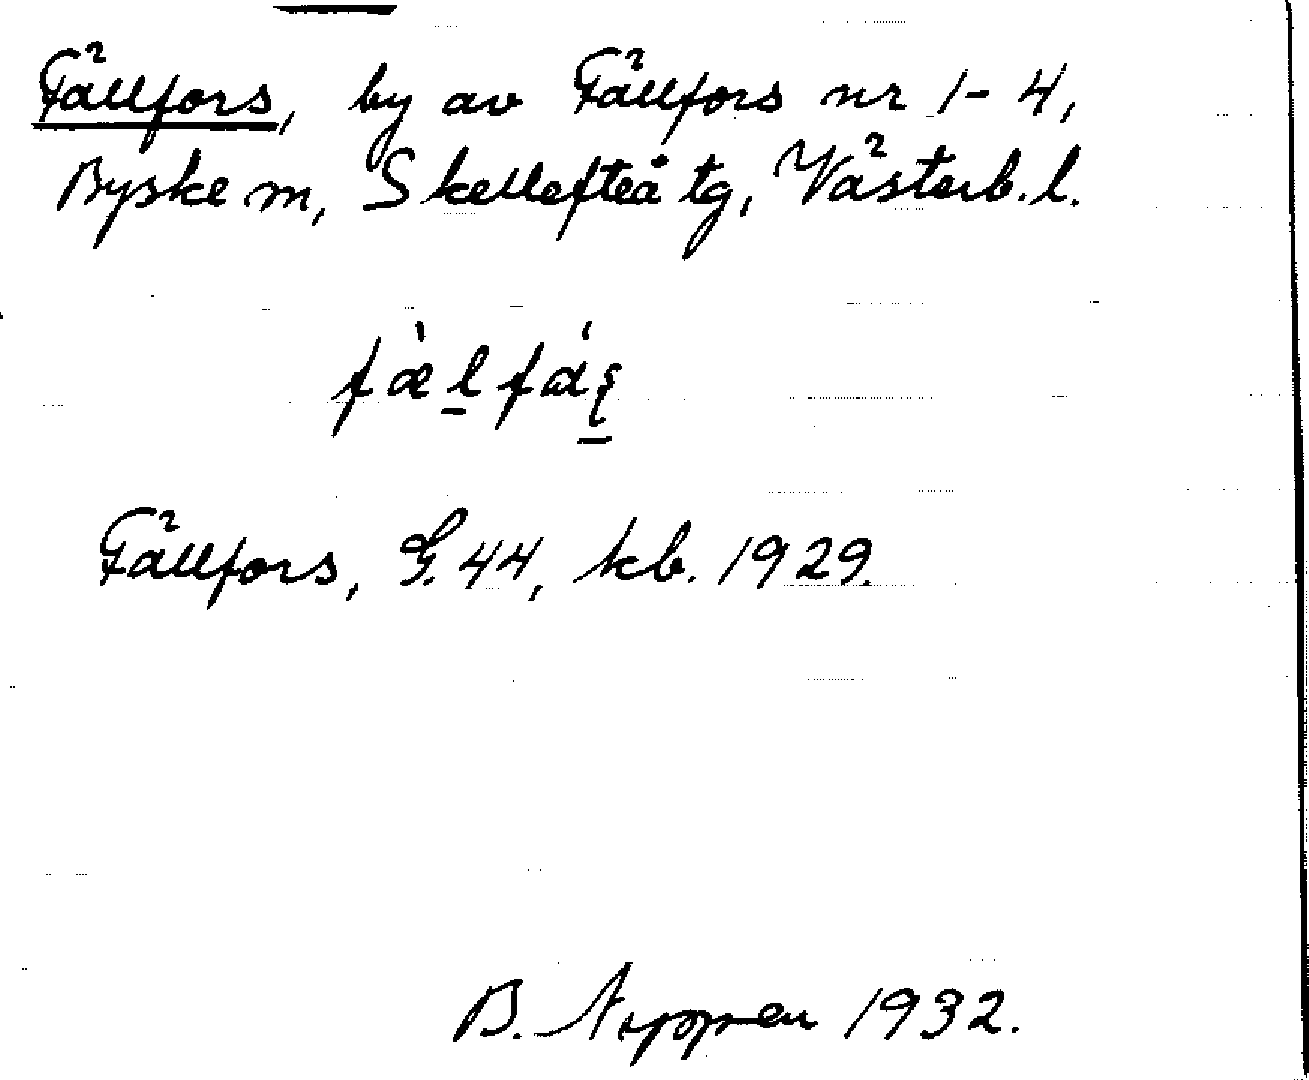 Fällfors, by av Fällfors nr 1-4,
Byske m, Skellefteå tg, Västerb. l.
Fällfors, G. 44, kb. 1929.
B. 1932.